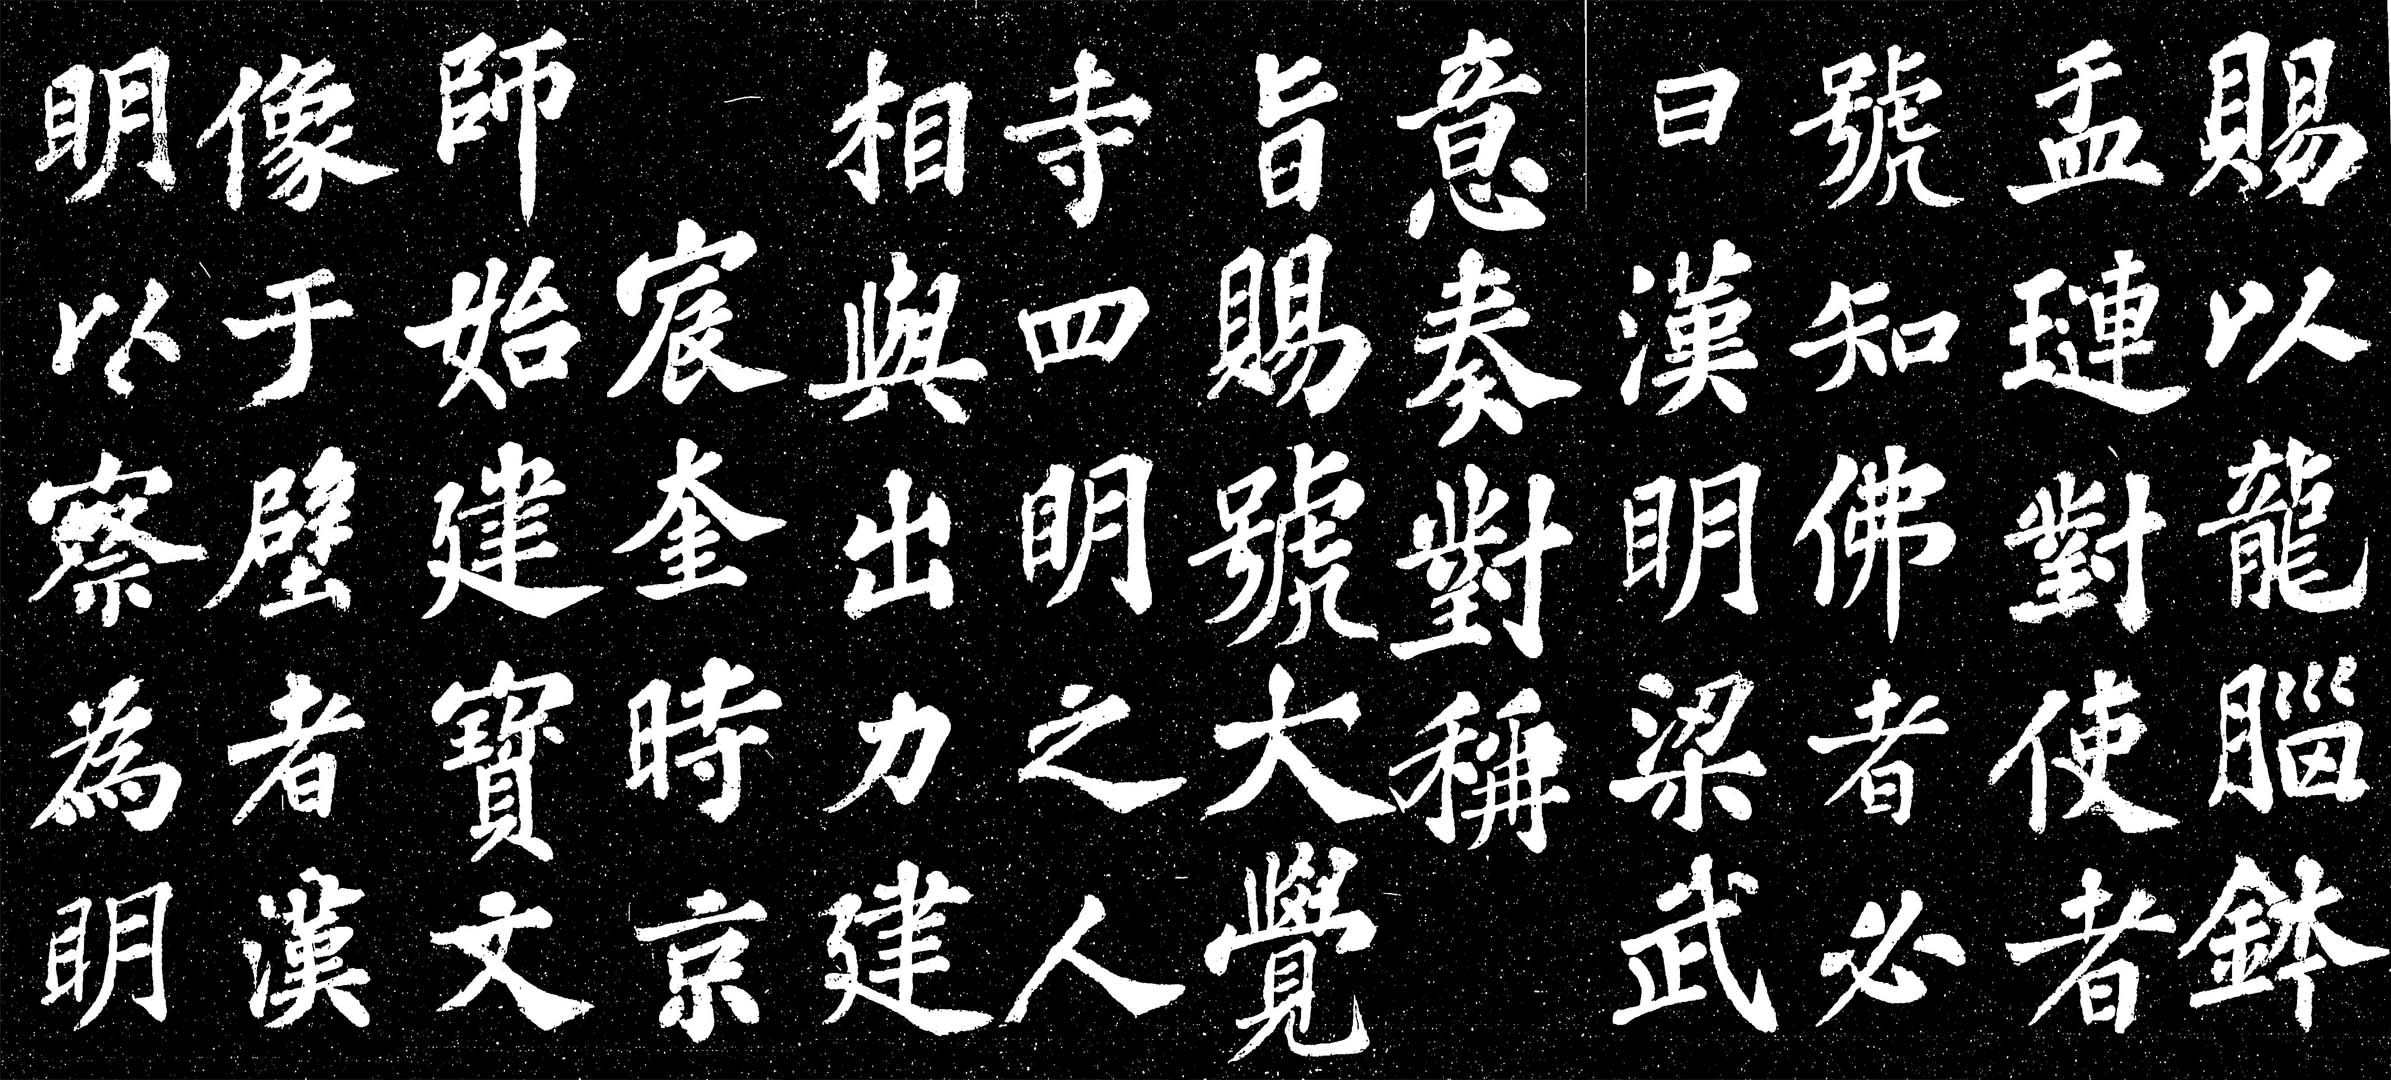 賜以龍腦鉢
盂璉對使者
號知佛者必
曰漢明梁武
意奏對稱
旨賜號大覺
寺四明之人
相與出力建
宸奎時京
師始建寶文
像于壁者漢
明以察為明